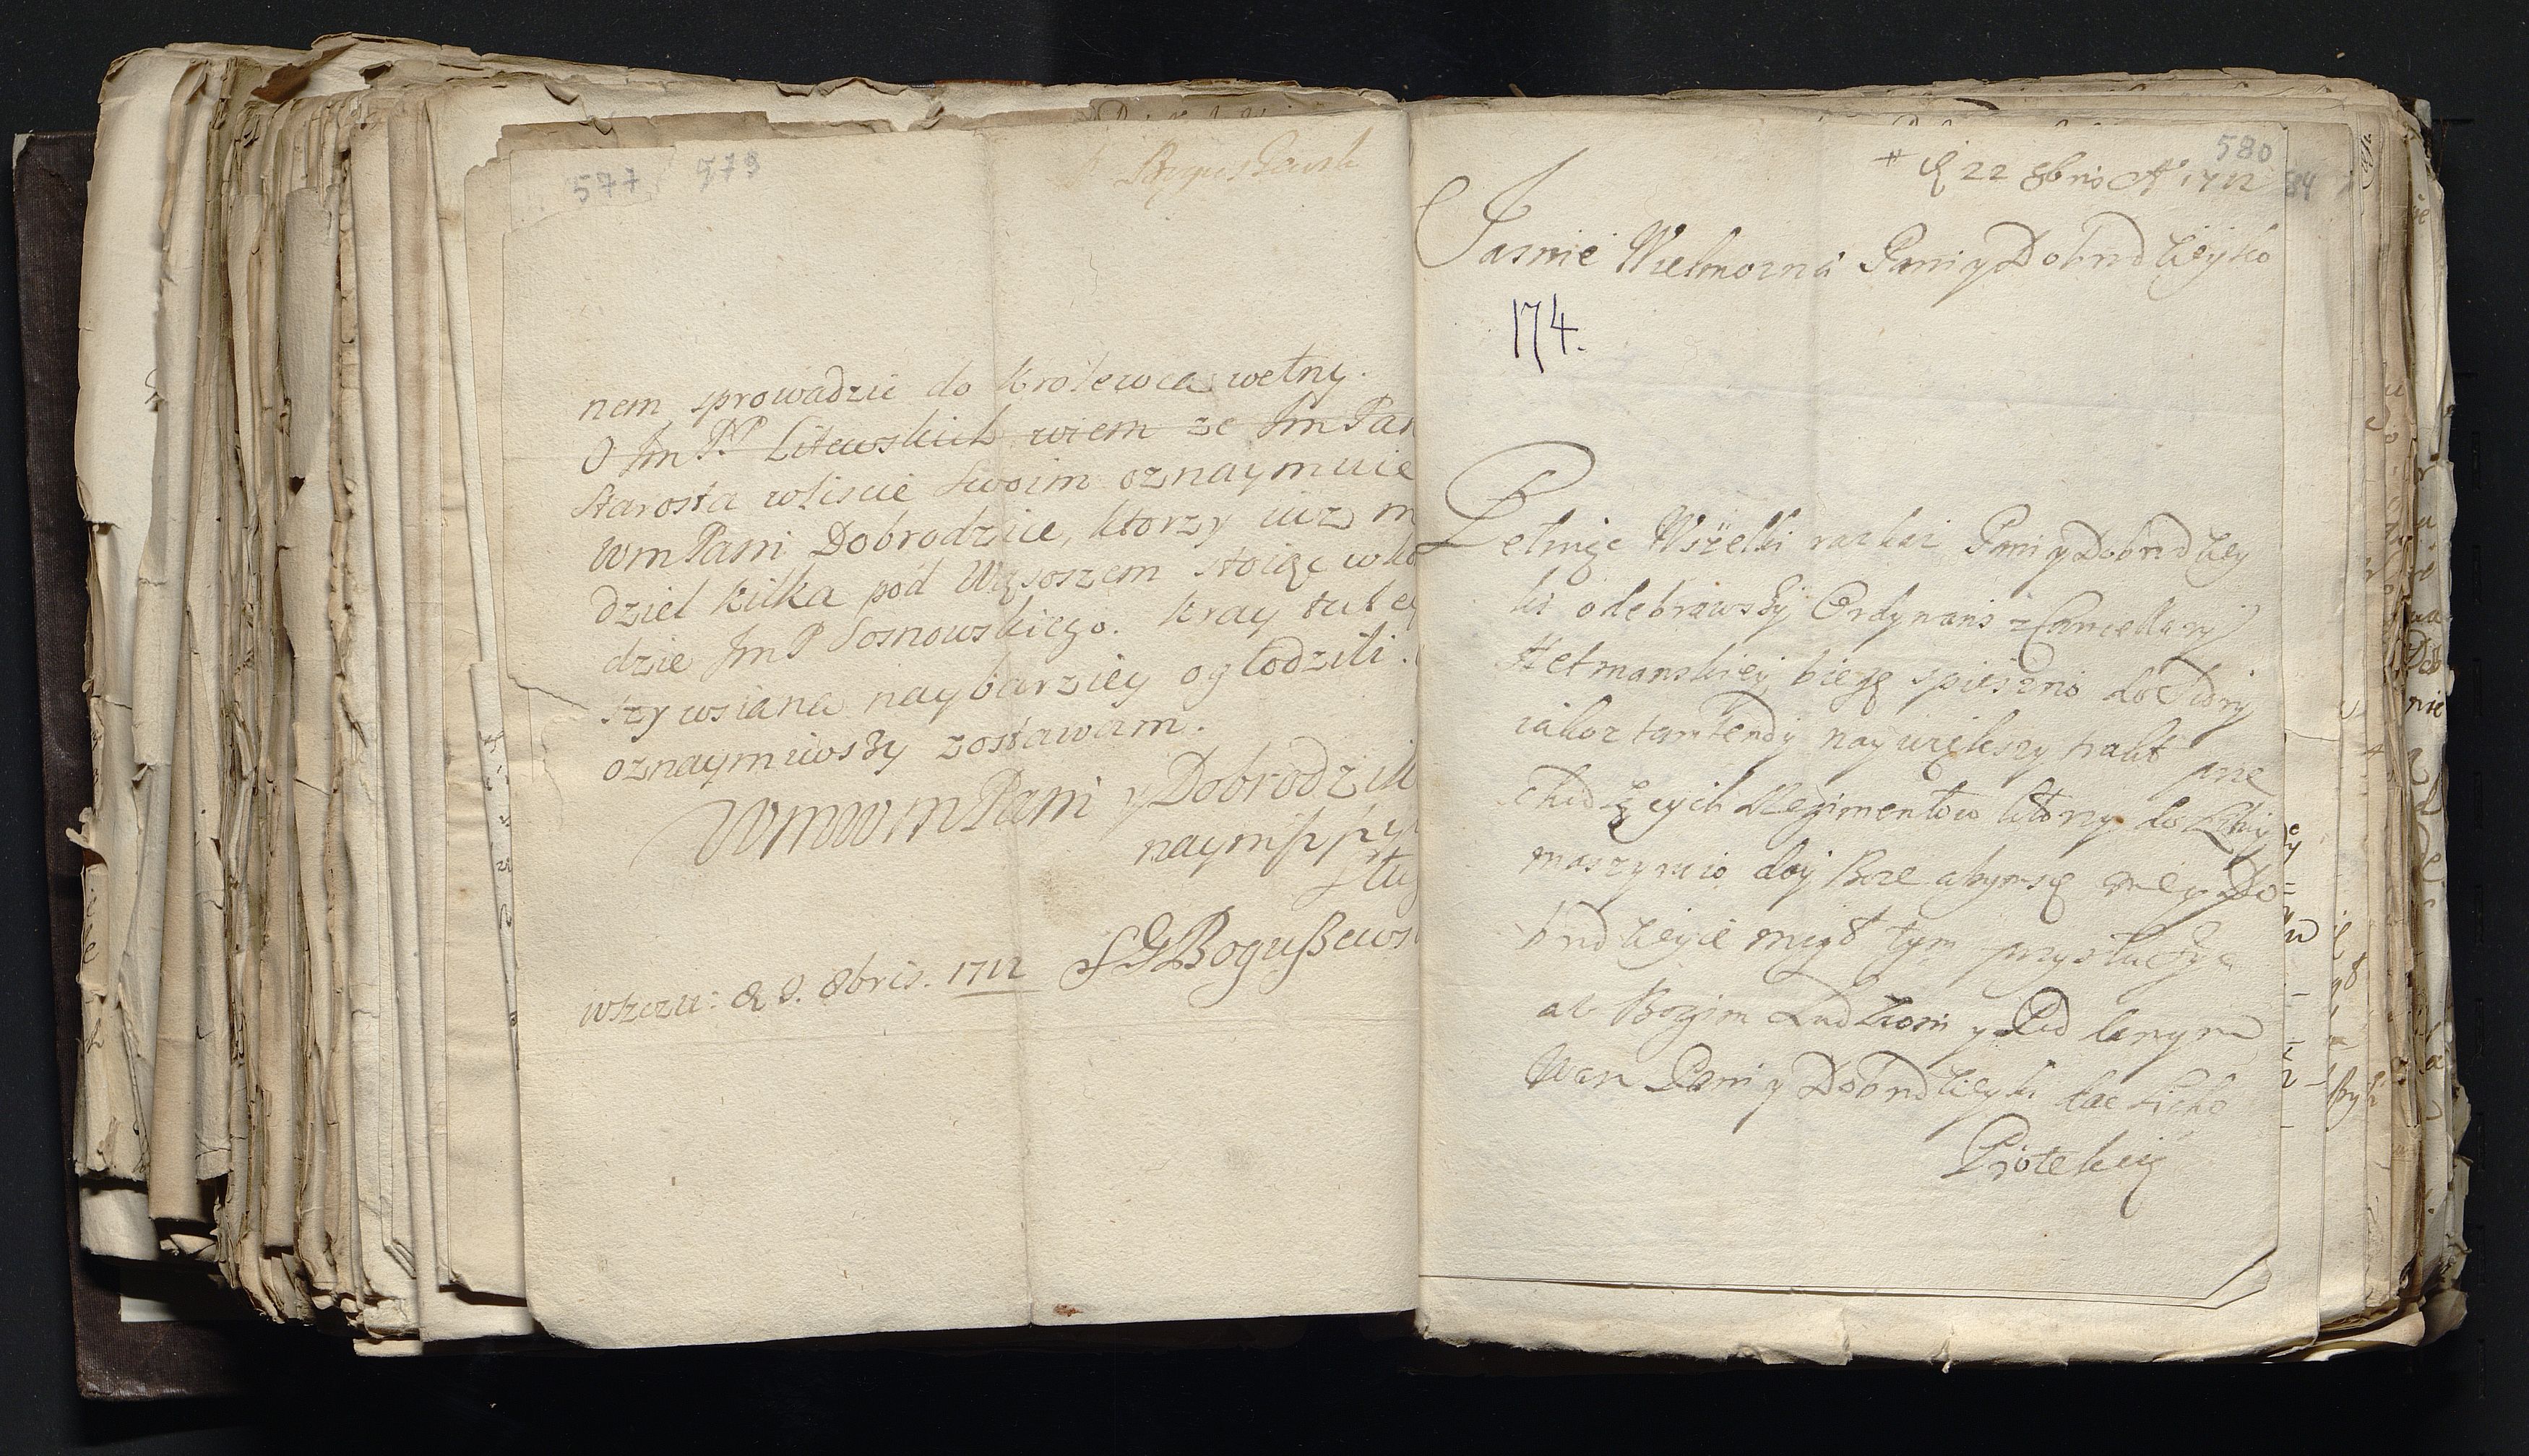 577 579
Boguszewsk
nem sprowadzic do Krolewca wełny.
O Jm PP Litewskich wiem ze Jm Pan
Starosta wliscie Swoim oznaymuie
Wm Pani Dobrodzice, ktorzy iuz
dziel kilka pod Wąsoszem stoiąc
dzie Jm P Sosnowskiego. Kray
szywsiana naybarziey ogłodzili.
oznaymiwszy zostawam.
WmWmPani y Dobrodziki
naymßßy
Słu
wszczu: d 9. 8bris. 1712 S G Bogußews
580
d 22 8bris A° 1712
Jasnie Wielmozna Pani y Dobrodzieyko
174.
Pełniąc Wszelki rozkaz Pani y Dobrodziey
ki odebrawszy Ordynans z Cancellaryi
Hetmanskiey bieżę spieszno do
iakoz tamtendy naywiększy trakt prze
chodzących Regimentow ktory do Litwy
maszyruio day Boze abymsię mey Do
brodzieyce mogł tym przysłużyc
ale Bozym Ludziom y Pod
Wm Pani y Dobrodzieyki
Protekcyą